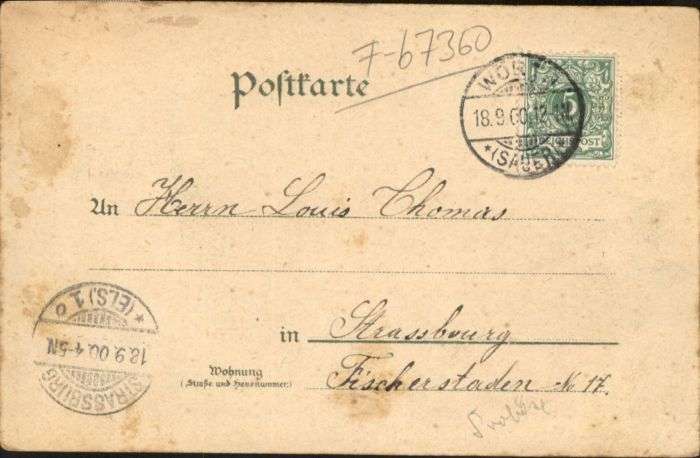 F-67360
Postkarte
WÖRTH
18.9.00.12
*(SAUER)*
5
REICHSPOST
An Herrn Louis Thomas
in Strassbourg
Wohnung
(Straße und Hausnummer)
Fischerstaden No 17.
STRASSBURG
18.9.00.4-5N
*(ELS.)1 o